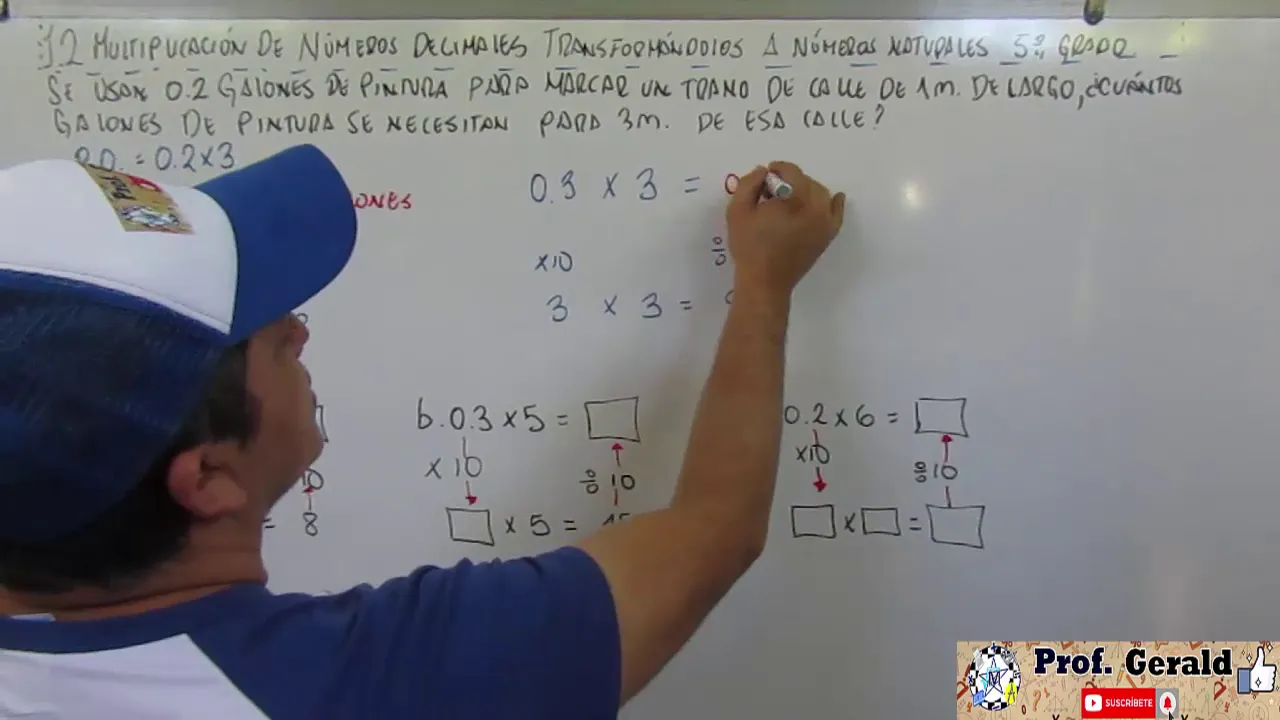 1.2 MULTIPLICACIÓN DE NÚMEROS DECIMALES TRANSFORMÁNDOLOS A NÚMEROS NATURALES 5º GRADO
SE USAN 0.2 GALONES DE PINTURA PARA MARCAR UN TRAMO DE CALLE DE 1m. DE LARGO, ¿CUÁNTOS
GALONES DE PINTURA SE NECESITAN PARA 3m. DE ESA CALLE?
P.O. = 0.2 x 3
ONES
0.3 x 3 = 0
x10
3 x 3 =
b. 0.3 x 5 =
x 10
÷ 10
x 5 = 15
10
= 8
0.2 x 6 =
x10
÷10
x =
Prof. Gerald
SUSCRÍBETE